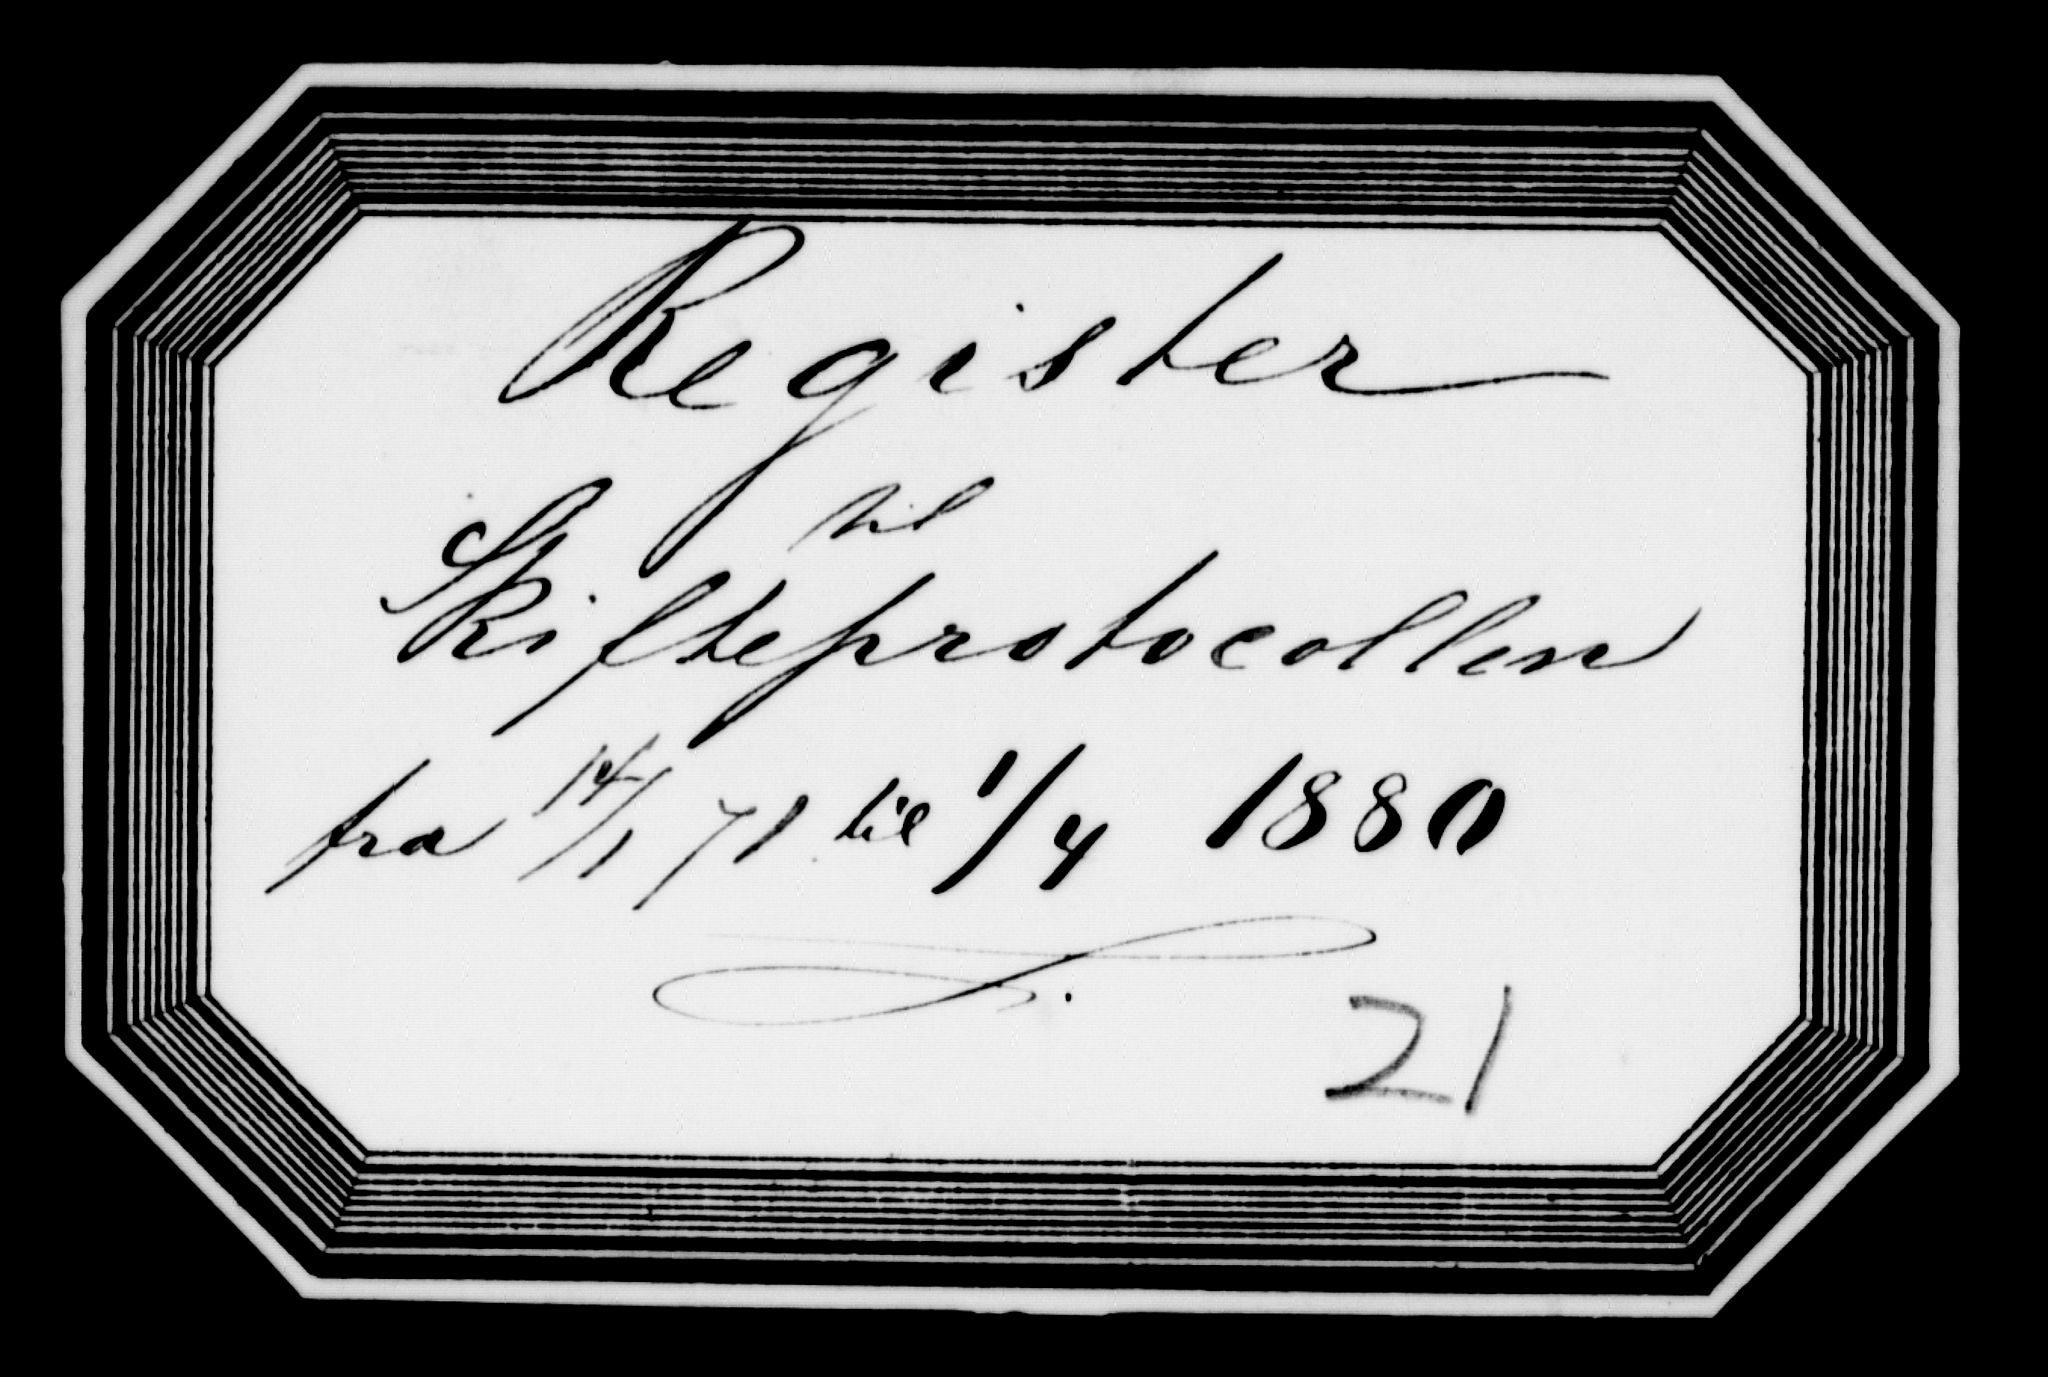 Register
til
Skifteprotocollen
fra 14/1 71 til 1/4 1880
21